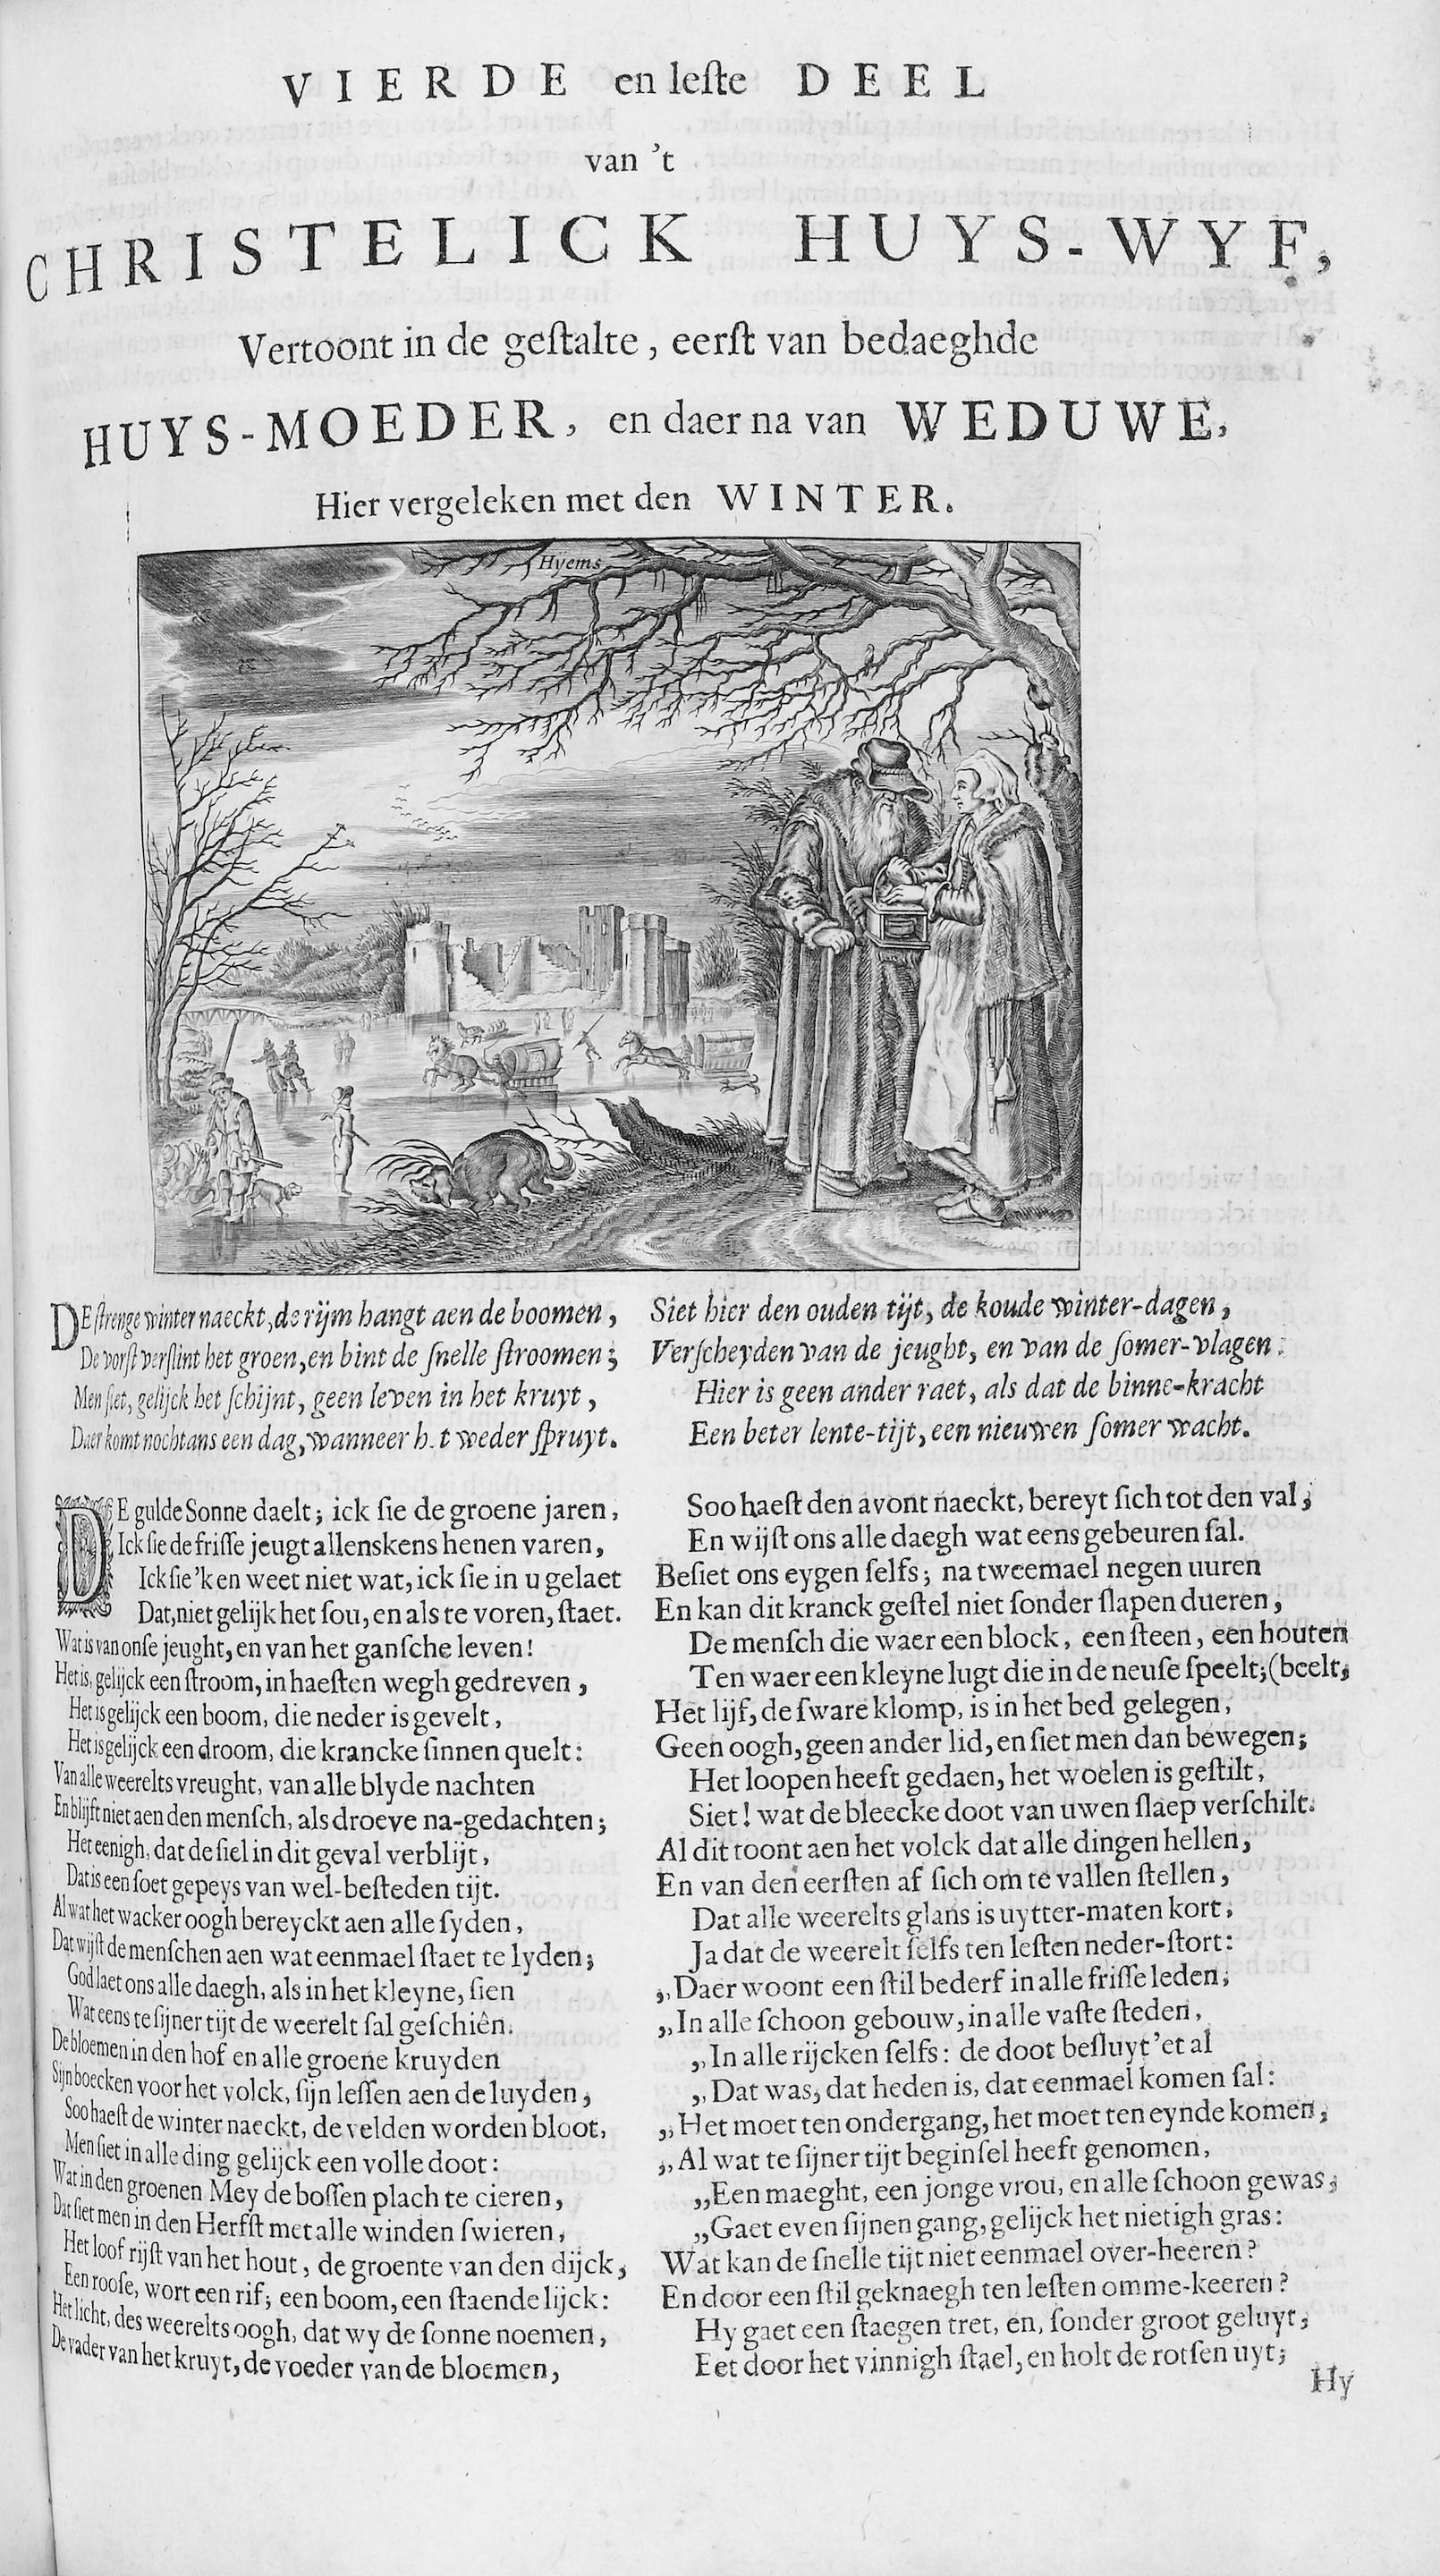 VIERDE en leſte DEEL
van 't
CHRISTELICK HUYS-WYF,
Vertoont in de geſtalte, eerſt van bedaeghde
HUYS-MOEDER, en daer na van WEDUWE,
Hier vergeleken met den WINTER.
Hyems
DE ſtrenge winter naeckt, de rijm hangt aen de boomen,
De vorſt verſlint het groen, en bint de ſnelle ſtroomen;
Men ſiet, gelijck het ſchijnt, geen leven in het kruyt,
Daer komt nochtans een dag, wanneer h.t weder ſpruyt.
Siet hier den ouden tijt, de koude winter-dagen,
Verſcheyden van de jeught, en van de ſomer-vlagen:
Hier is geen ander raet, als dat de binne-kracht
Een beter lente-tijt, een nieuwen ſomer wacht.
DE gulde Sonne daelt; ick ſie de groene jaren,
Ick ſie de friſſe jeugt allenskens henen varen,
Ick ſie 'k en weet niet wat, ick ſie in u gelaet
Dat, niet gelijk het ſou, en als te voren, ſtaet.
Wat is van onſe jeught, en van het ganſche leven!
Het is, gelijck een ſtroom, in haeſten wegh gedreven,
Het is gelijck een boom, die neder is gevelt,
Het is gelijck een droom, die krancke ſinnen quelt:
Van alle weerelts vreught, van alle blyde nachten
En blijft niet aen den menſch, als droeve na-gedachten;
Het eenigh, dat de ſiel in dit geval verblijt,
Dat is een ſoet gepeys van wel-beſteden tijt.
Al wat het wacker oogh bereyckt aen alle ſyden,
Dat wijſt de menſchen aen wat eenmael ſtaet te lyden;
God laet ons alle daegh, als in het kleyne, ſien
Wat eens te ſijner tijt de weerelt ſal geſchiên.
De bloemen in den hof en alle groene kruyden
Sijn boecken voor het volck, ſijn leſſen aen de luyden,
Soo haeſt de winter naeckt, de velden worden bloot,
Men ſiet in alle ding gelijck een volle doot:
Wat in den groenen Mey de boſſen plach te cieren,
Dat ſiet men in den Herfſt met alle winden ſwieren,
Het loof rijſt van het hout, de groente van den dijck,
Een rooſe, wort een rif; een boom, een ſtaende lijck:
Het licht, des weerelts oogh, dat wy de ſonne noemen,
De vader van het kruyt, de voeder van de bloemen,
Soo haeſt den avont naeckt, bereyt ſich tot den val;
En wijſt ons alle daegh wat eens gebeuren ſal.
Beſiet ons eygen ſelfs; na tweemael negen uuren
En kan dit kranck geſtel niet ſonder ſlapen dueren,
De menſch die waer een block, een ſteen, een houten
Ten waer een kleyne lugt die in de neuſe ſpeelt; (beelt,
Het lijf, de ſware klomp, is in het bed gelegen,
Geen oogh, geen ander lid, en ſiet men dan bewegen;
Het loopen heeft gedaen, het woelen is geſtilt,
Siet! wat de bleecke doot van uwen ſlaep verſchilt.
Al dit toont aen het volck dat alle dingen hellen,
En van den eerſten af ſich om te vallen ſtellen,
Dat alle weerelts glans is uytter-maten kort,
Ja dat de weerelt ſelfs ten leſten neder-ſtort:
„Daer woont een ſtil bederf in alle friſſe leden;
„In alle ſchoon gebouw, in alle vaſte ſteden,
„In alle rijcken ſelfs: de doot beſluyt 'et al
„Dat was, dat heden is, dat eenmael komen ſal:
„Het moet ten ondergang, het moet ten eynde komen,
„Al wat te ſijner tijt beginſel heeft genomen,
„Een maeght, een jonge vrou, en alle ſchoon gewas,
„Gaet even ſijnen gang, gelijck het nietigh gras:
Wat kan de ſnelle tijt niet eenmael over-heeren?
En door een ſtil geknaegh ten leſten omme-keeren?
Hy gaet een ſtaegen tret, en, ſonder groot geluyt,
Eet door het vinnigh ſtael, en holt de rotſen uyt;
Hy